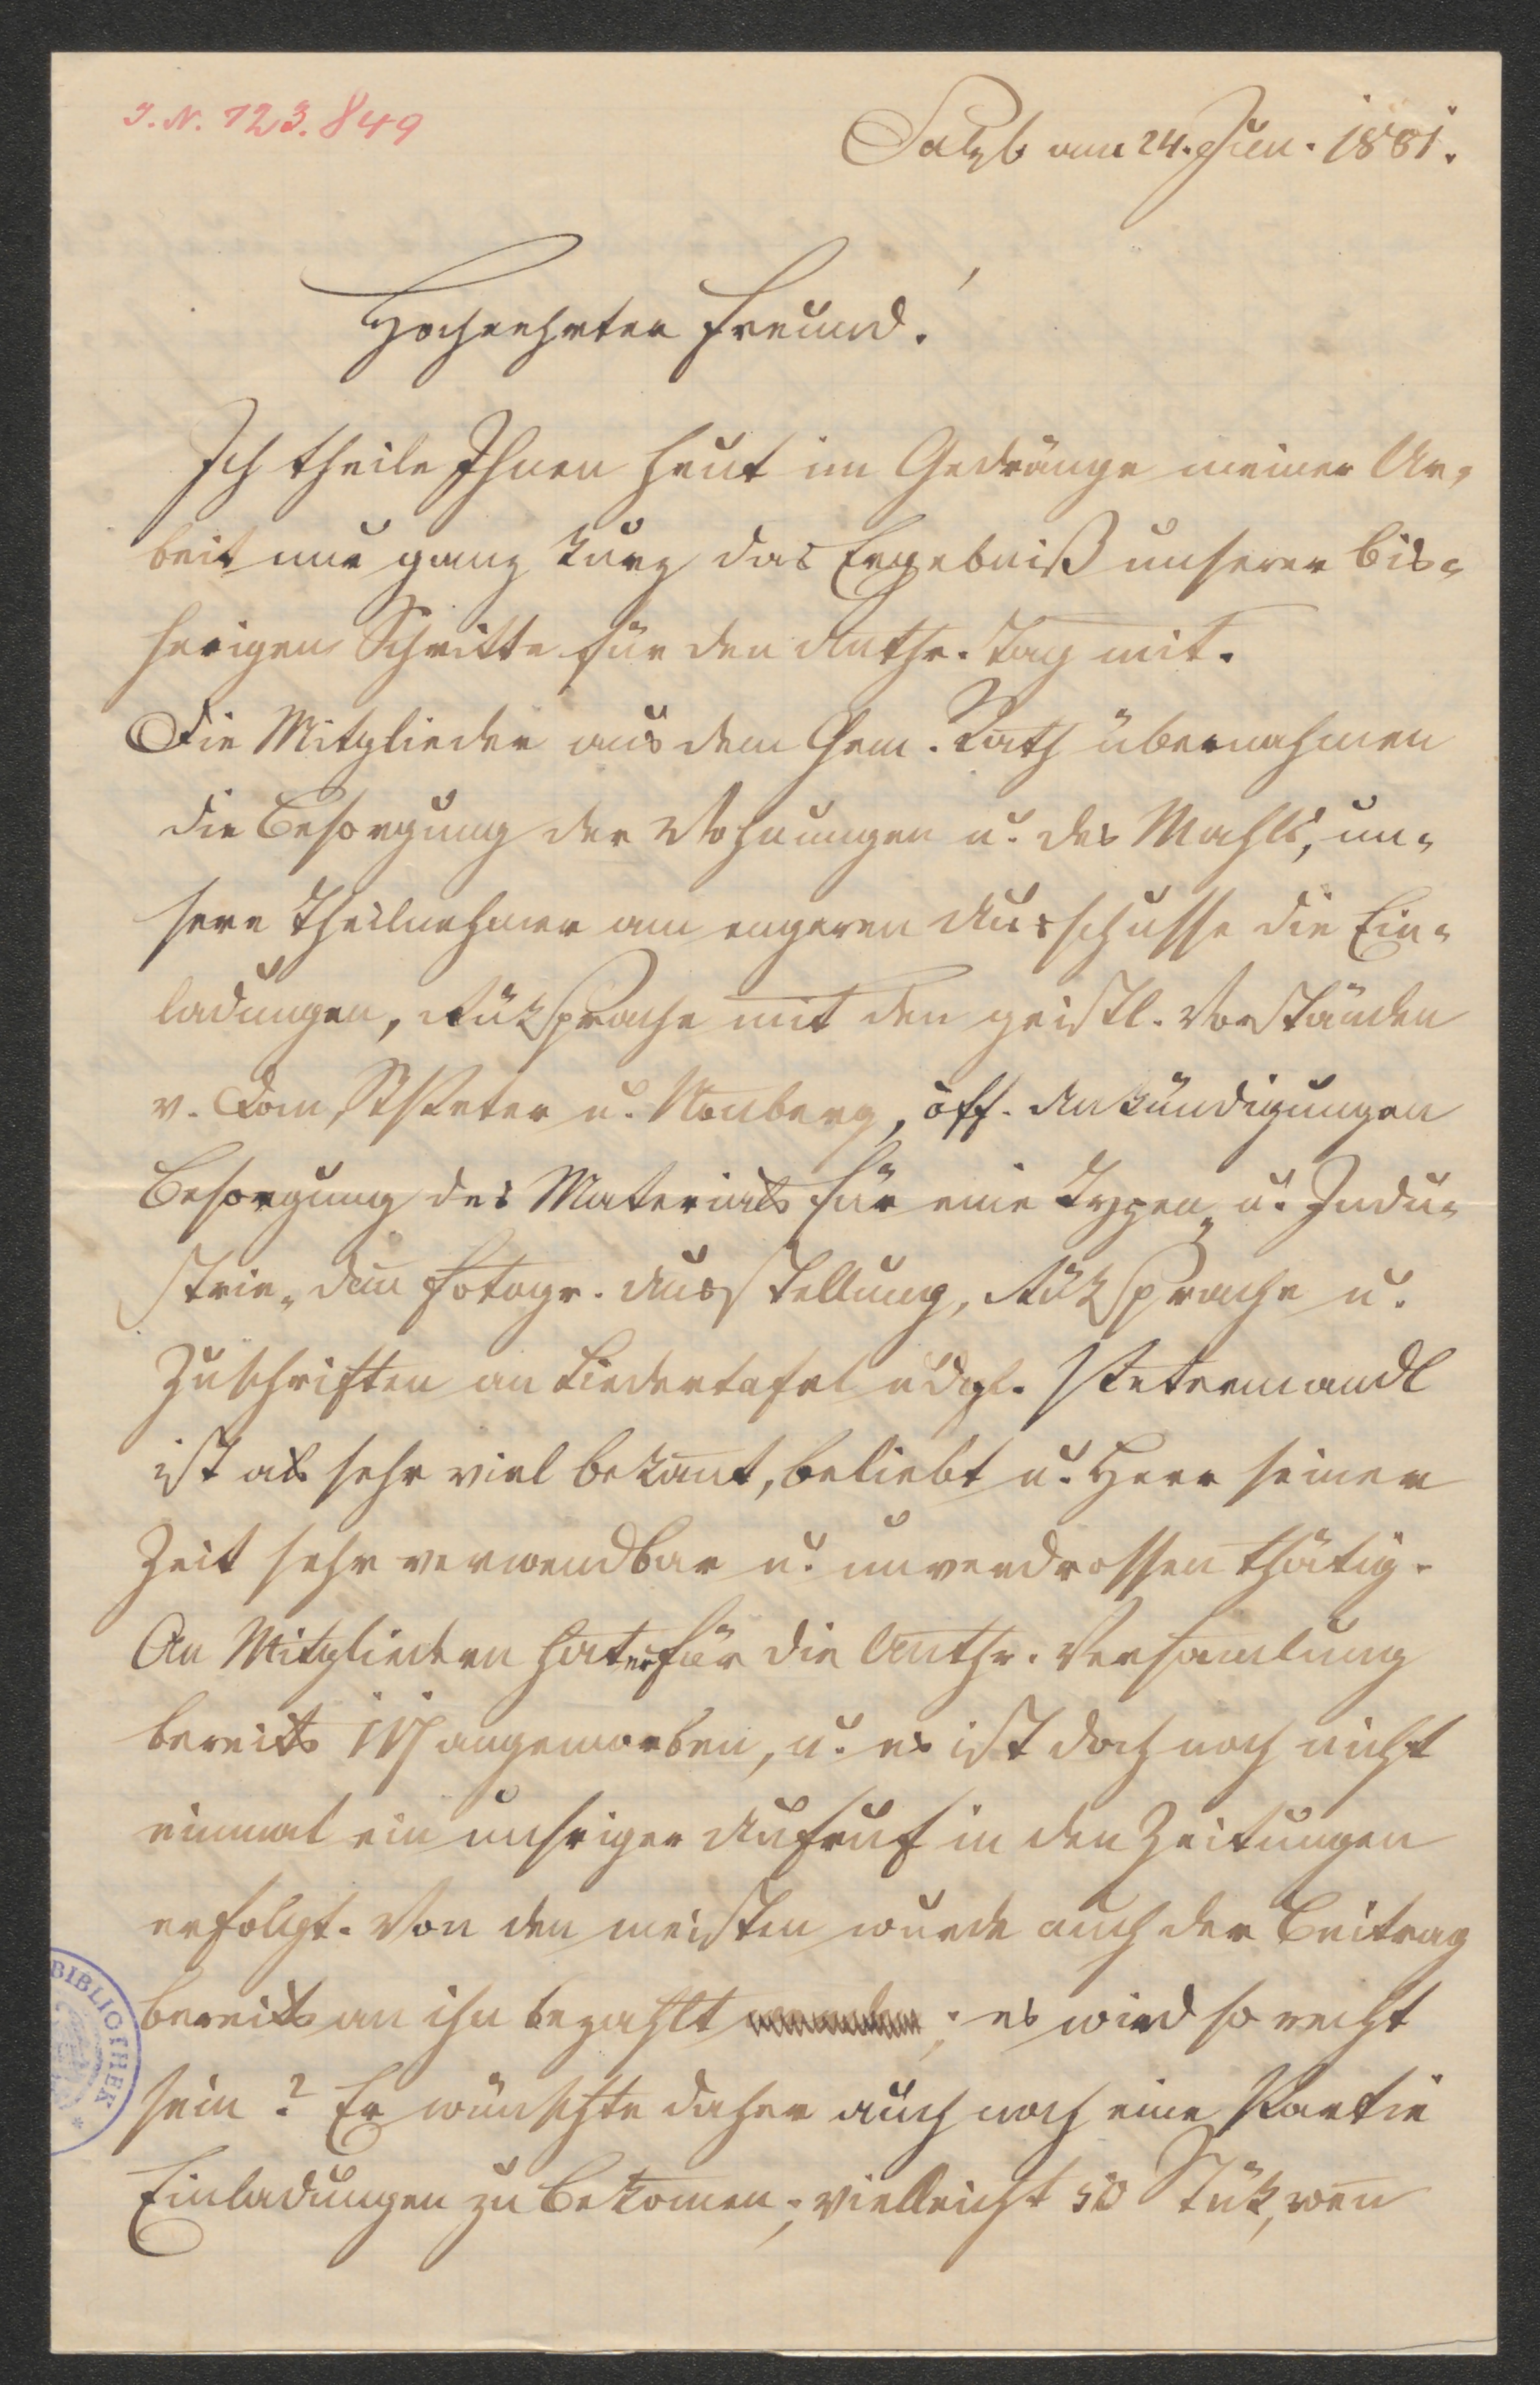 I. N. 123.849
Salzb am 24. Jun. 1881.
Hochgeehrter Freund!
Ich theile Ihnen heut im Gedränge meiner Ar-
beit nur ganz kurz das Ergebniß unserer bis-
herigen Schritte für den Anthr. Tag mit.
Die Mitglieder aus dem Gem. Rath übernahmen
die Besorgung der Wohnungen u. des Mahls, un-
sere Theilnehmer am engeren Ausschusse die Ein-
ladungen, Rüksprache mit den geistl. Vorständen
v. Dom, St Peter u. Nonberg, öff. Ankündigungen
Besorgung des Materials für eine Typen- u. Indu-
strie- dan̄ fotogr. Ausstellung, Rüksprache u.
Zuschriften an Liedertafel udgl. Petermandl
ist als sehr viel bekan̄t, beliebt u. Herr seiner
Zeit sehr verwendbar u. unverdrossen thätig.
An Mitgliedern hat er für die Anthr. Versam̄lung
bereits angeworben, u. es ist doch noch nicht
einmal ein unsriger Aufruf in den Zeitungen
erfolgt. Von den meisten wurde auch der Beitrag
bereits an ihn bezahlt ; es wird so recht
sein? Er wünschte daher auch noch eine Partie
Einladungen zu bekom̄en; vielleicht 50 Stük, wen̄
BIBLIOTHEK